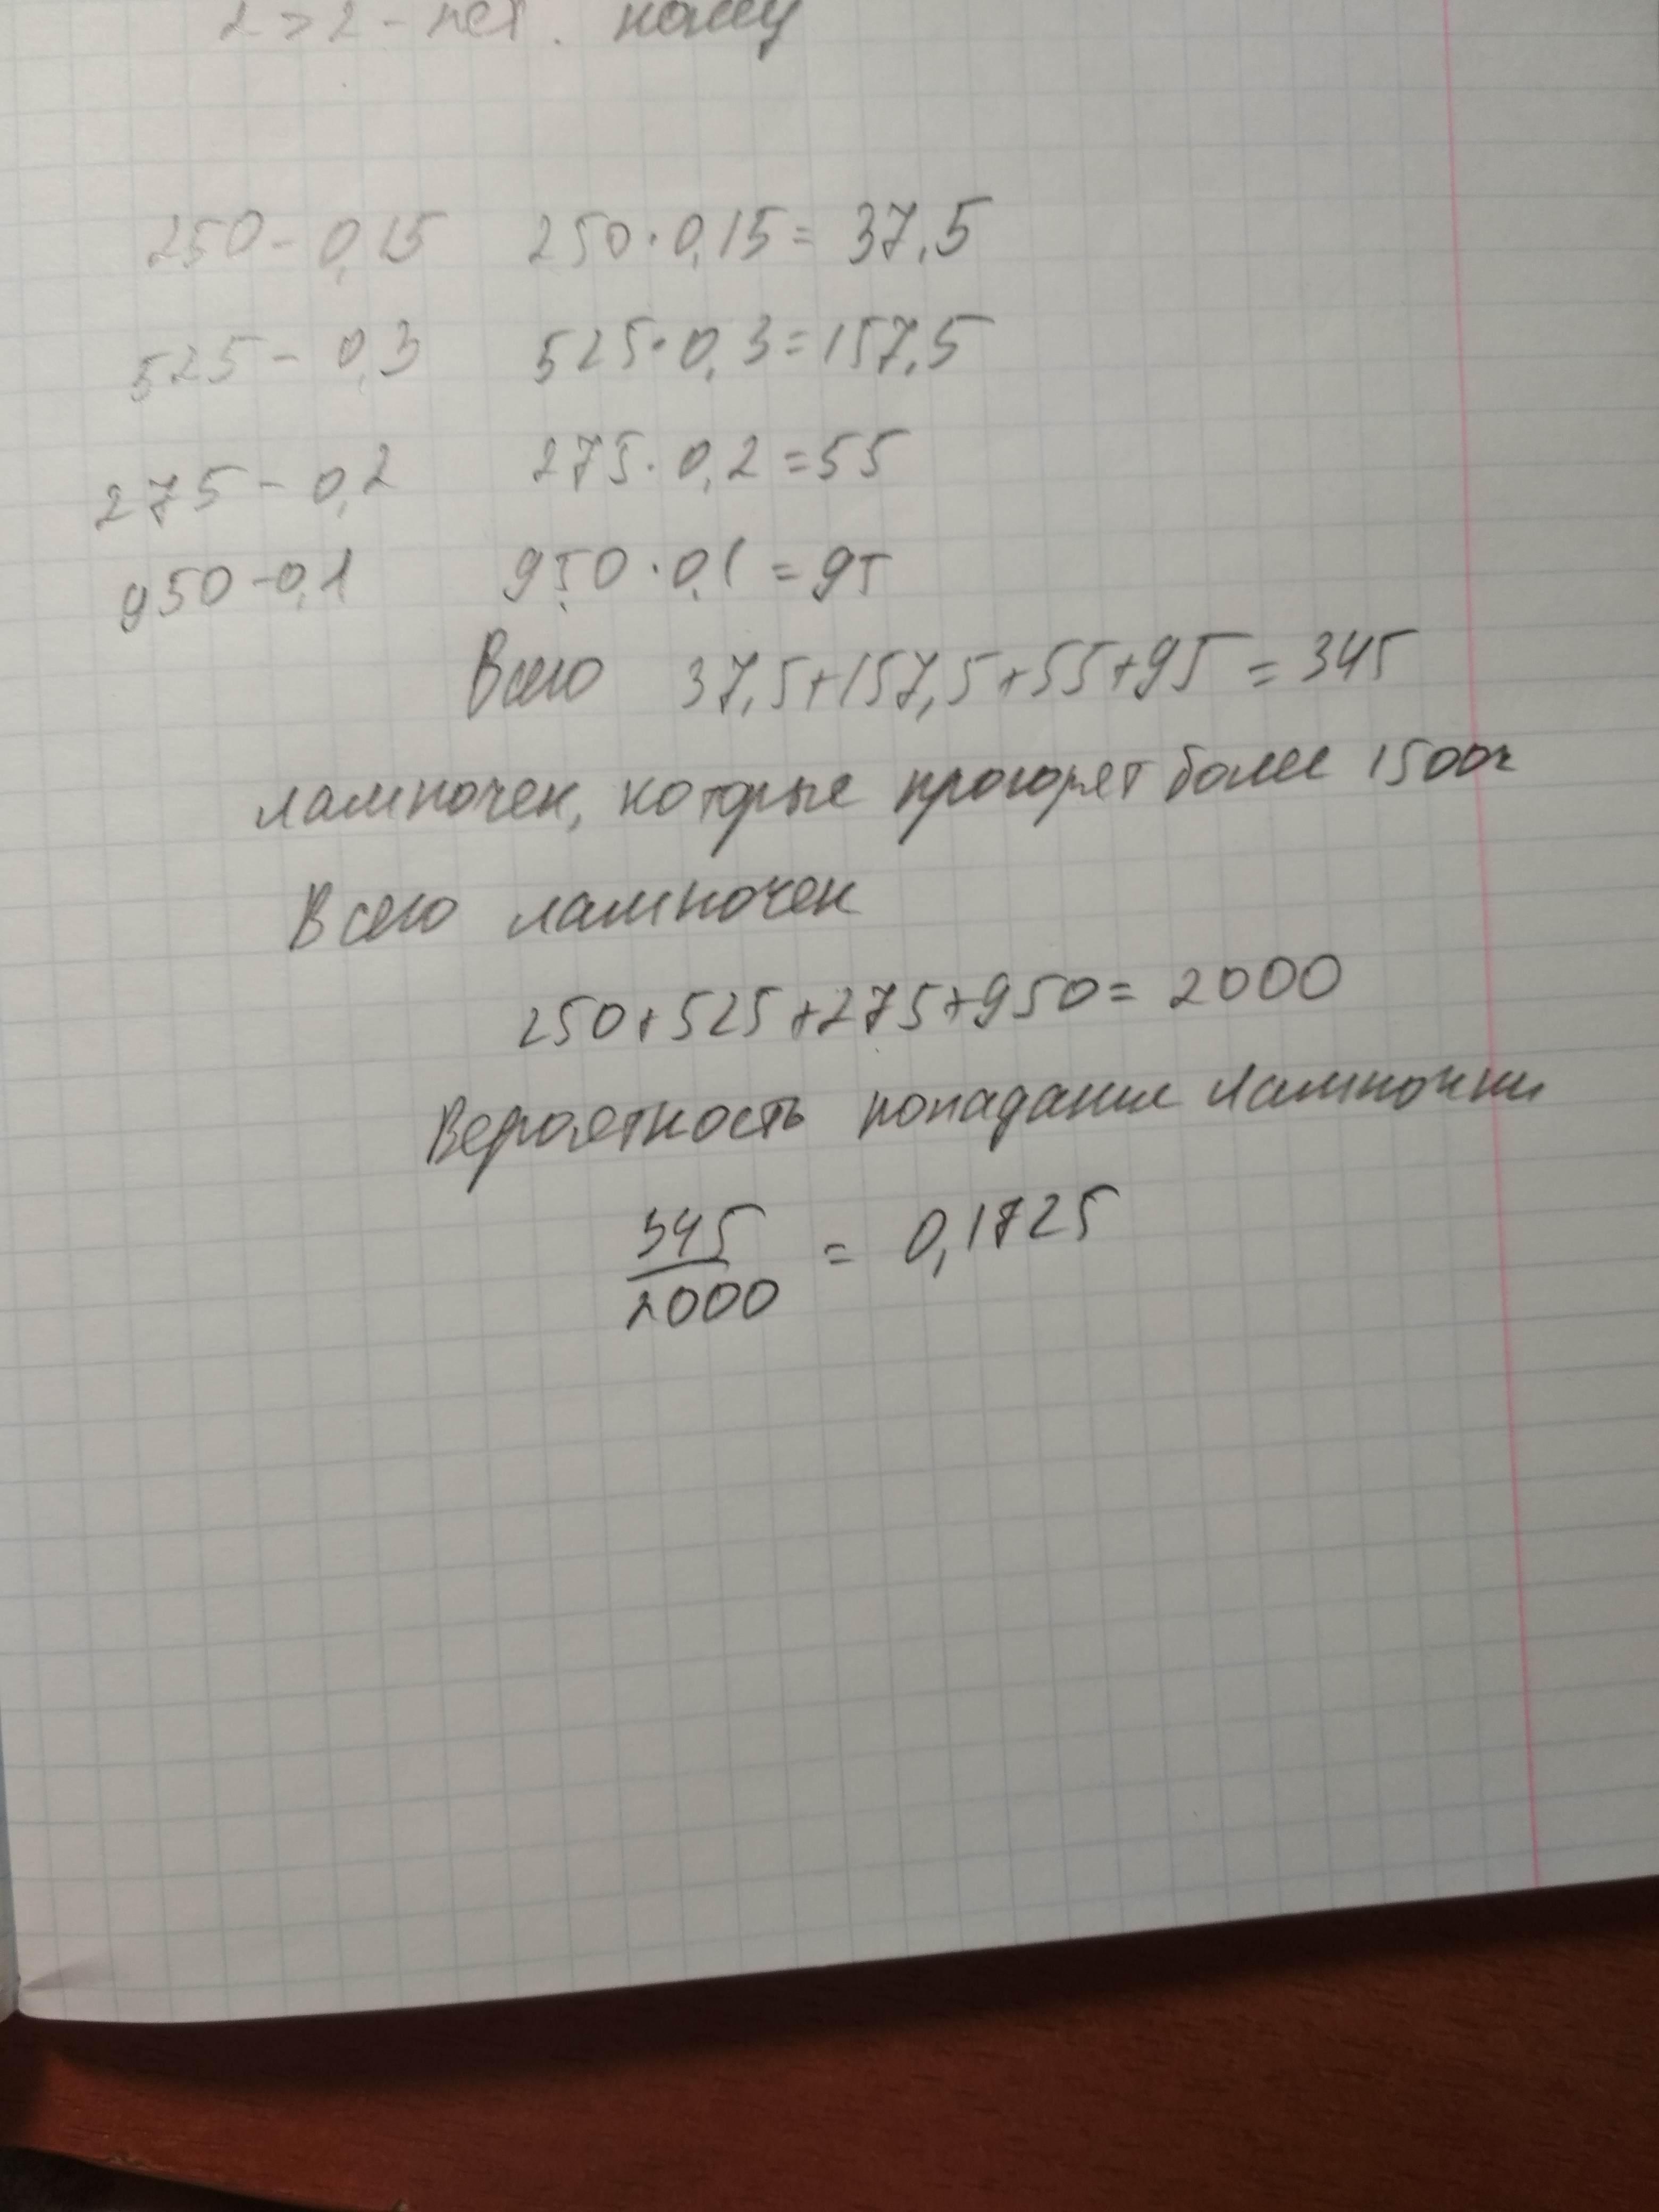 2 > 2 - нет.
250 - 0,15 250 · 0,15 = 37,5
525 - 0,3 525 · 0,3 = 157,5
275 - 0,2 275 · 0,2 = 55
950 - 0,1 950 · 0,1 = 95
Всего 37,5+157,5+55+95 = 345
лампочек, которые прогорят более 1500ч
Всего лампочек
250+525+275+950 = 2000
Вероятность попадания лампочки
345
2000 = 0,1725